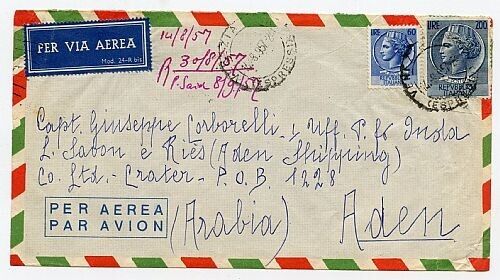 PER VIA AEREA
Mod. 24-R bis
14/8/57
R 30/8/57
P Said 8/9/57
LIRE 60
REPUBBLICA
ITALIANA
LIRE 200
REPUBBLICA
ITALIANA
(ESPRESSI)
(ESPRESSI)
Capt. Giuseppe Corborelli 1° Uff. P.fo Isola
L. Savon e Riès (Aden Shipping)
Co. Ltd. - Crater - P.O.B. 1228
PER AEREA
PAR AVION
(Arabia) Aden